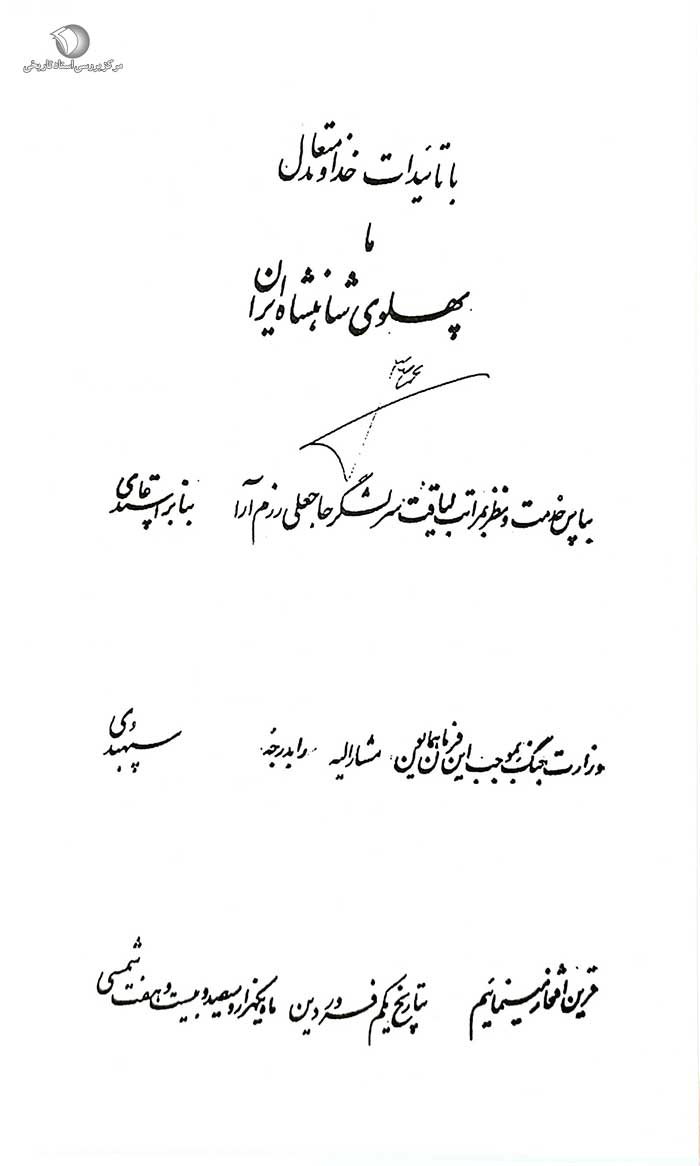 مرکز بررسی اسناد تاریخی
با تائیدات خداوند متعال
ما
پهلوی شاهنشاه ایران
بپاس خدمت و نظر بمراتب لیاقت سرلشگر حاجعلی رزم آرا بنا بر استدعای
وزارت جنگ بموجب این فرمان همایون مشارالیه را بدرجه سپهبدی
قرین افتخار مینمائیم بتاریخ یکم فروردین ماه یکهزار و سیصد و بیست و هفت شمسی